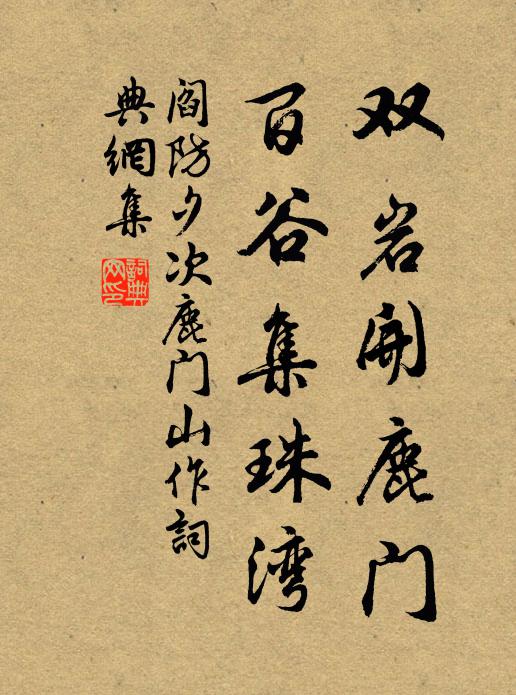 双岩開鹿门
百谷集珠湾
阎防夕次鹿门山作詞
典網集
詞典
网印